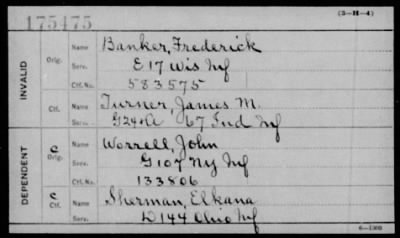 175475
(3-H-4)
INVALID
Orig.
Name Banker, Frederick
Serv. E 17 Wis Inf
Ctf. No. 583575
Ctf.
Name Turner, James M.
Serv. G 24 & A 67 Ind Inf
DEPENDENT
C
Orig.
Name Worrell, John
Serv. G 107 NY Inf
Ctf. No. 133806
C
Ctf.
Name Sherman, Elkana
Serv. D 144 Ohio Inf